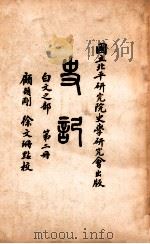 國立北平研究院史學研究會出版
史記
白文之部 第二冊
顧頡剛 徐文珊點校